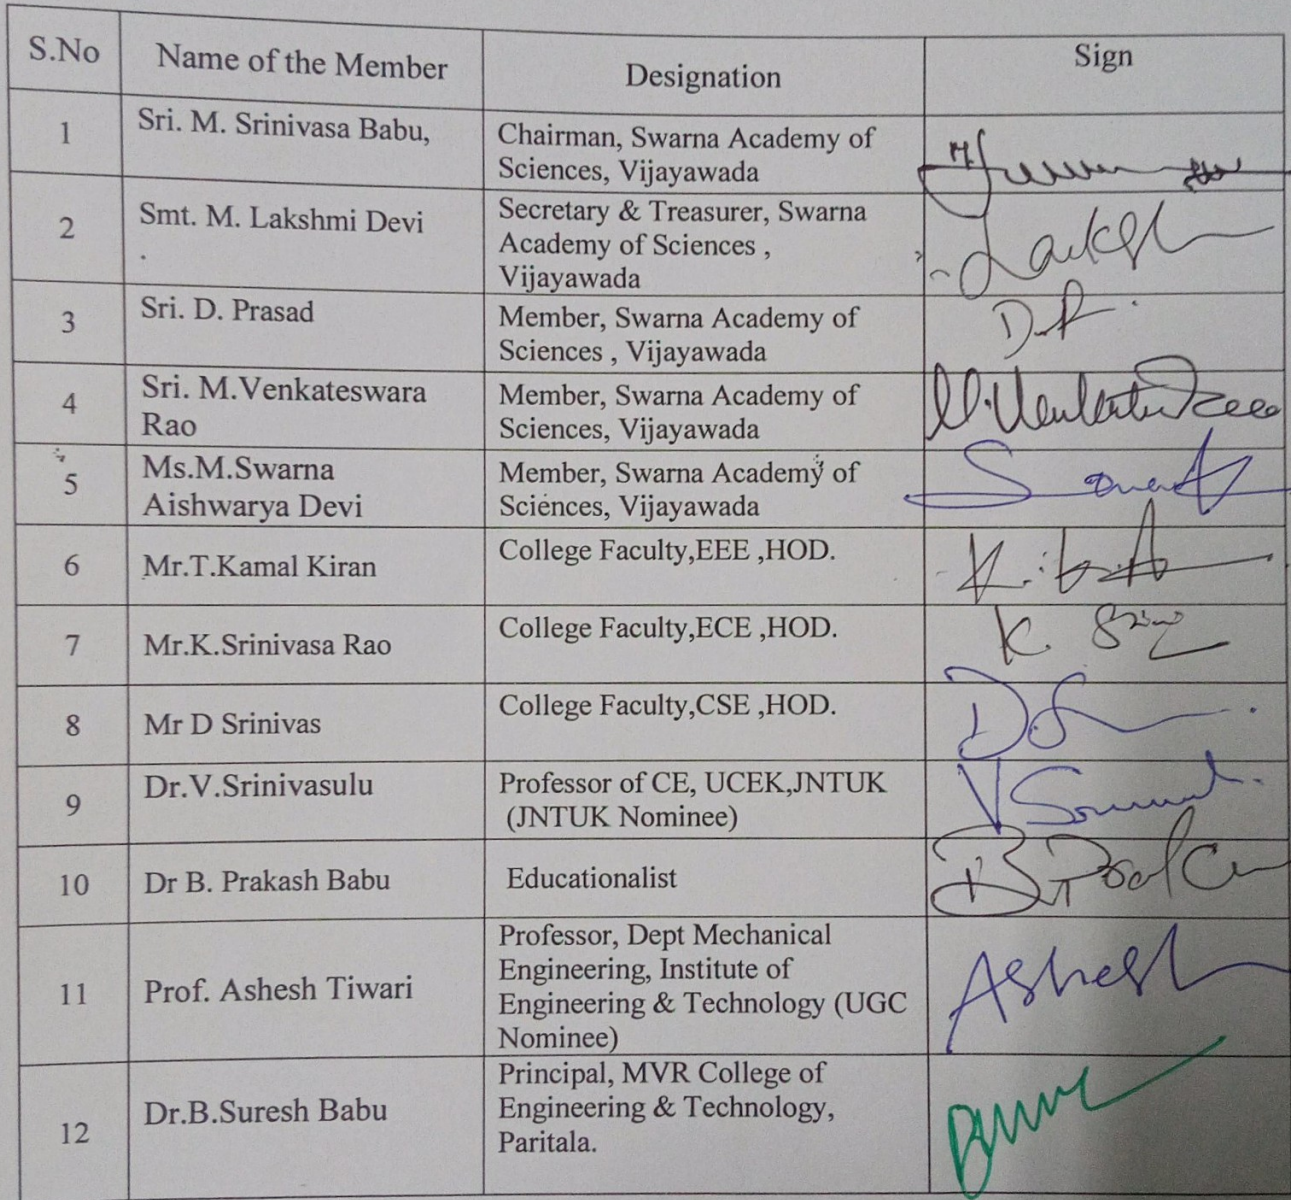 S.No Name of the Member Designation Sign
1 Sri. M. Srinivasa Babu, Chairman, Swarna Academy of
Sciences, Vijayawada
2 Smt. M. Lakshmi Devi Secretary & Treasurer, Swarna
. Academy of Sciences ,
Vijayawada
3 Sri. D. Prasad Member, Swarna Academy of
Sciences , Vijayawada
4 Sri. M.Venkateswara Member, Swarna Academy of
Rao Sciences, Vijayawada
5 Ms.M.Swarna Member, Swarna Academy of
Aishwarya Devi Sciences, Vijayawada
6 Mr.T.Kamal Kiran College Faculty,EEE ,HOD.
7 Mr.K.Srinivasa Rao College Faculty,ECE ,HOD.
8 Mr D Srinivas College Faculty,CSE ,HOD.
9 Dr.V.Srinivasulu Professor of CE, UCEK,JNTUK
(JNTUK Nominee)
10 Dr B. Prakash Babu Educationalist
11 Prof. Ashesh Tiwari Professor, Dept Mechanical
Engineering, Institute of
Engineering & Technology (UGC
Nominee)
Ashesh
12 Dr.B.Suresh Babu Principal, MVR College of
Engineering & Technology,
Paritala.